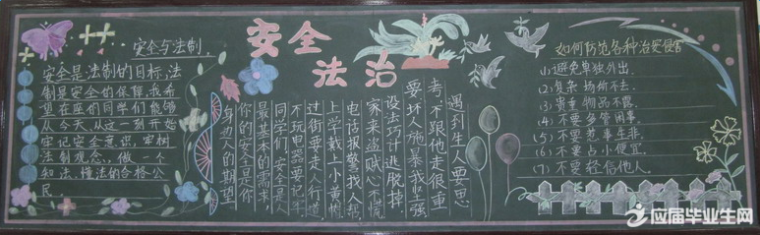 安全与法制
安全是法制的目标,法
制是安全的保障,我希
望在座的同学们能够
从今天,从这一刻开始
牢记安全意识,牢树
法制观念,做一个
知法、懂法的合格公
民。
安全
法治
遇到生人要思
考,不跟他走很重
要,坏人施暴我坚强
设法巧计逃脱掉,
家来盗贼心不慌
电话报警找人帮
上学戴上小黄帽
过街要走人行道
不玩电器要记牢
同学们,安全是人
最基本的需求,
你的安全是你
身边人的期望
如何防范各种治安侵害
(1)避免单独外出.
(2)复杂场价不去.
(3)贵重物品不露.
(4)不要多管闲事.
(5)不要惹事生非.
(6)不要占小便宜.
(7)不要轻信他人.
应届毕业生网